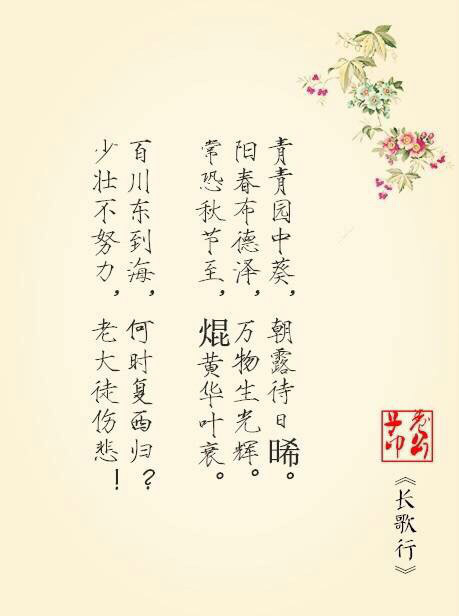 青青园中葵，朝露待日晞。
阳春布德泽，万物生光辉。
常恐秋节至，焜黄华叶衰。
百川东到海，何时复西归？
少壮不努力，老大徒伤悲！
《长歌行》